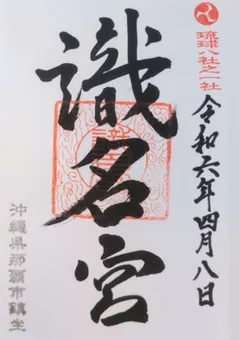 琉球八社之一社
令和六年四月八日
識名宮
沖縄県那覇市鎮坐